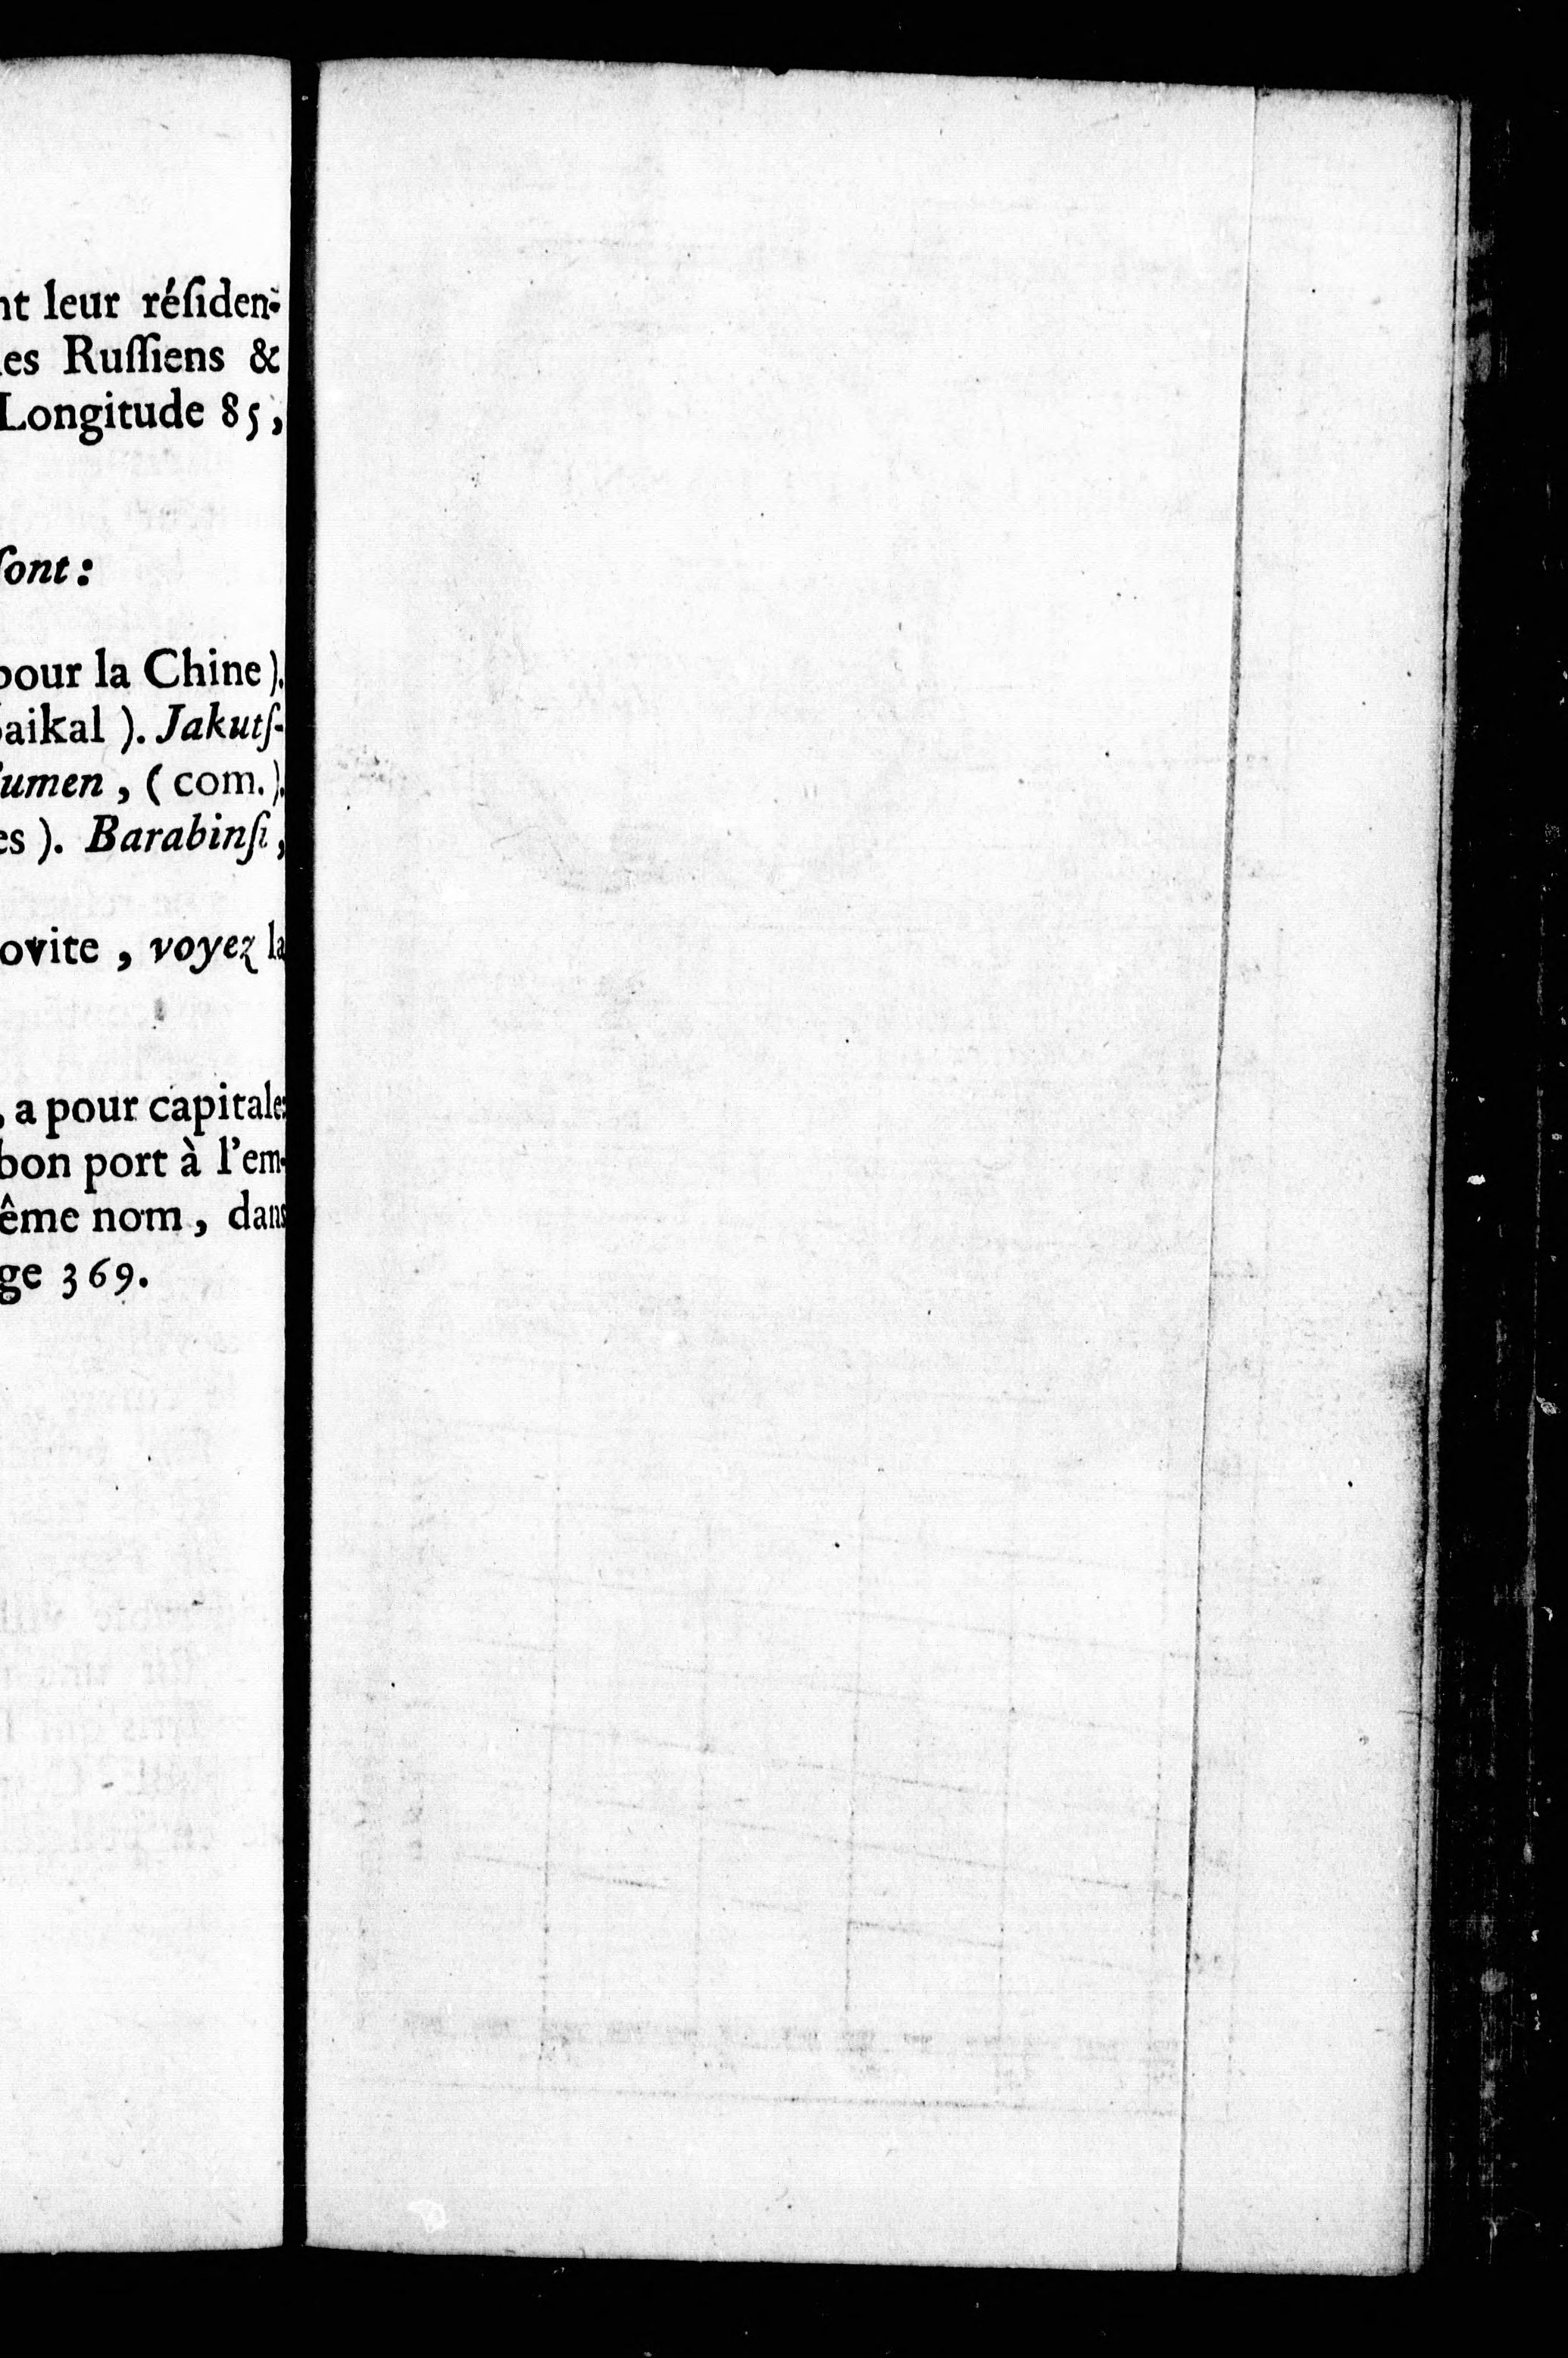 nt leur réſiden-
les Ruſſiens &
Longitude 85,
ſont :
pour la Chine).
aikal ). Jakutſ-
umen, ( com.).
es ). Barabinſi,
ovite, voyez la
, a pour capitale
bon port à l'em-
ême nom, dans
ge 369.